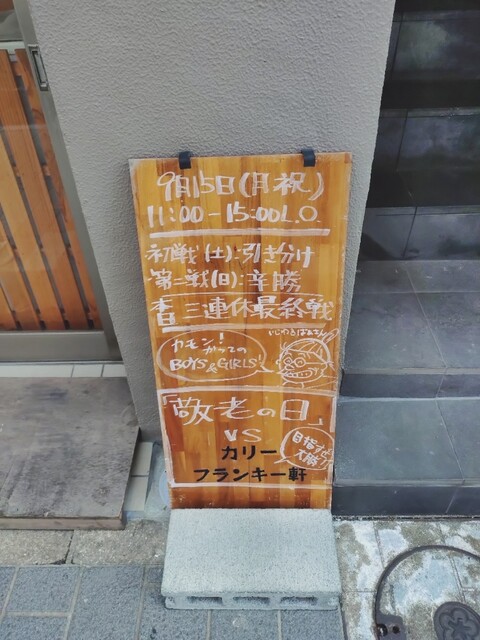 9月15日(月祝)
11:00-15:00L.O.
初戦(土):引き分け
第二戦(日):辛勝
本日 三連休最終戦
いじわるばあさん
カモン!
かつての
BOYS&GIRLS!
「敬老の日」
VS
目指すは
大勝!
カリー
フランキー軒